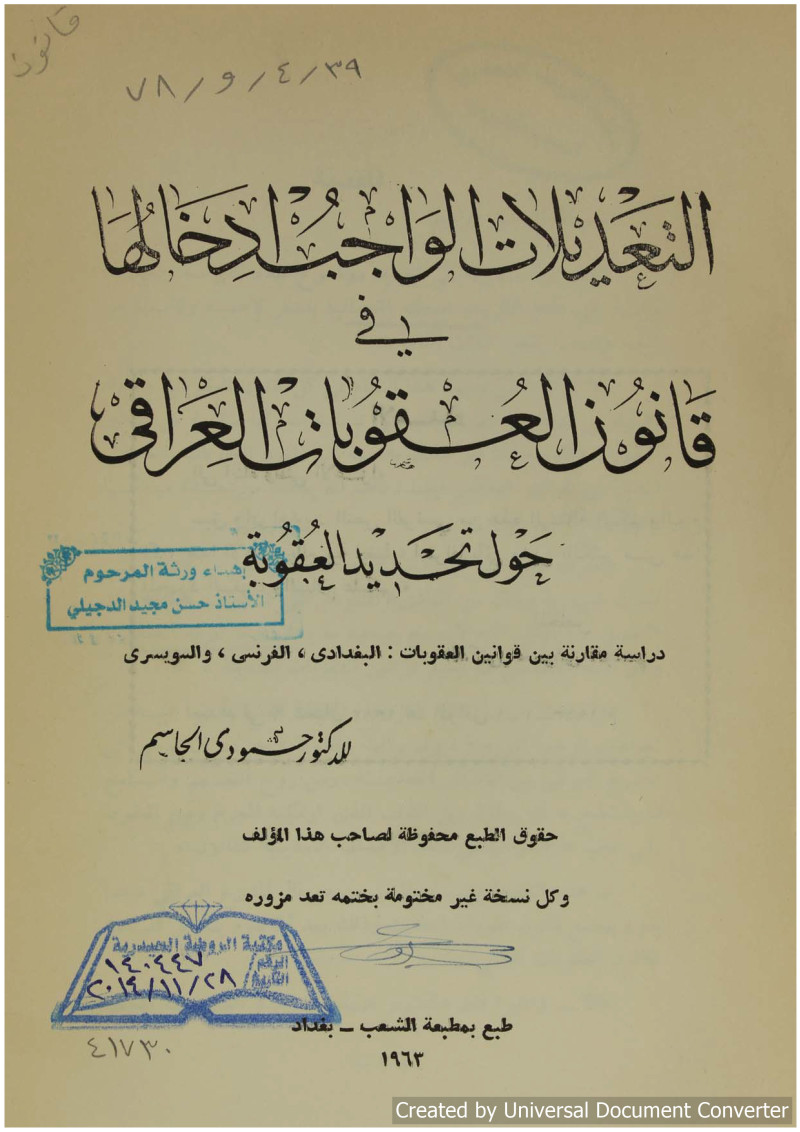 قانون
٧٨ / و / ٤ / ٣٩
التعديلات الواجب ادخالها
في
قانون العقوبات العراقي
حول تحديد العقوبة
إهداء ورثة المرحوم
الأستاذ حسن مجيد الدجيلي
دراسة مقارنة بين قوانين العقوبات : البغدادى ، الفرنسى ، والسويسرى
للدكتور حمودى الجاسم
حقوق الطبع محفوظة لصاحب هذا المؤلف
وكل نسخة غير مختومة بختمه تعد مزوره
مكتبة الروضة الحيدرية
الرقم ١٤٠٤٤٧
التاريخ ٢٠١٤/١١/٢٨
طبع بمطبعة الشعب ــ بغداد
١٩٦٣
٤١٧٣٠
Created by Universal Document Converter